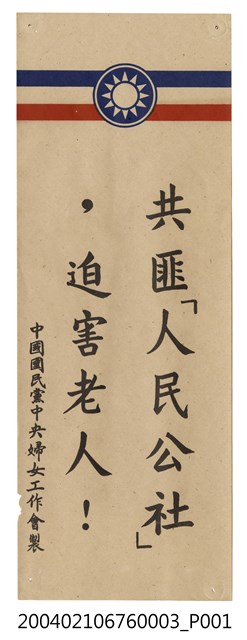 共匪「人民公社」
，迫害老人！
中國國民黨中央婦女工作會製
200402106760003_P001